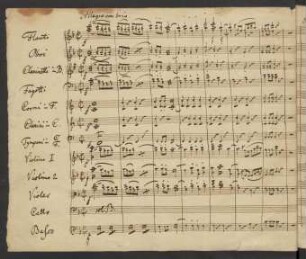 Allegro con brio
Flauti
Oboi
Clarinetti in B.
Fagotti
Corni in F.
Clarini in C.
Tympani in
Violino I
Violino 2
Violas
Cello
Basso